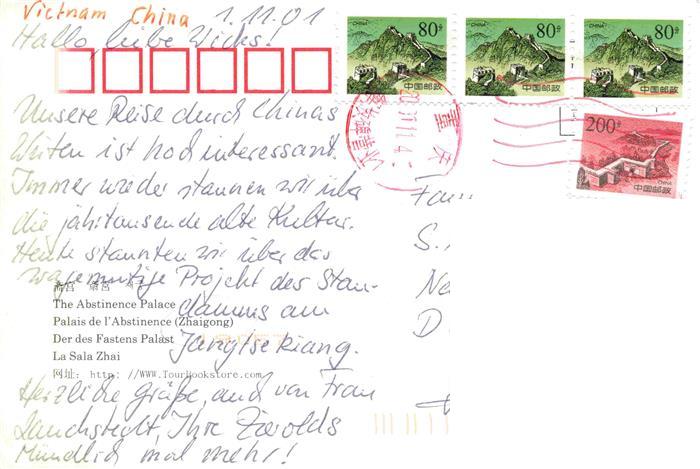 Vietnam China 1.11.01
Hallo, liebe Wicks!
Unsere Reise durch Chinas
Weiten ist hochinteressant.
Immer wieder staunen wir über
die jahrtausende alte Kultur.
Heute staunten wir über das
wagemutige Projekt des Stau-
damms am
Jangtsekiang.
Herzliche Grüße, auch von Frau
Lauchstedt, Ihre Zarolds
Mündlich mal mehr!
斋宫
The Abstinence Palace
Palais de l'Abstinence (Zhaigong)
Der des Fastens Palast
La Sala Zhai
网址: http://www.TourBookstore.com
CHINA 80分 中国邮政
CHINA 80分 中国邮政
CHINA 80分 中国邮政
200分 CHINA 中国邮政
重庆
Fam
S.
Ne
D